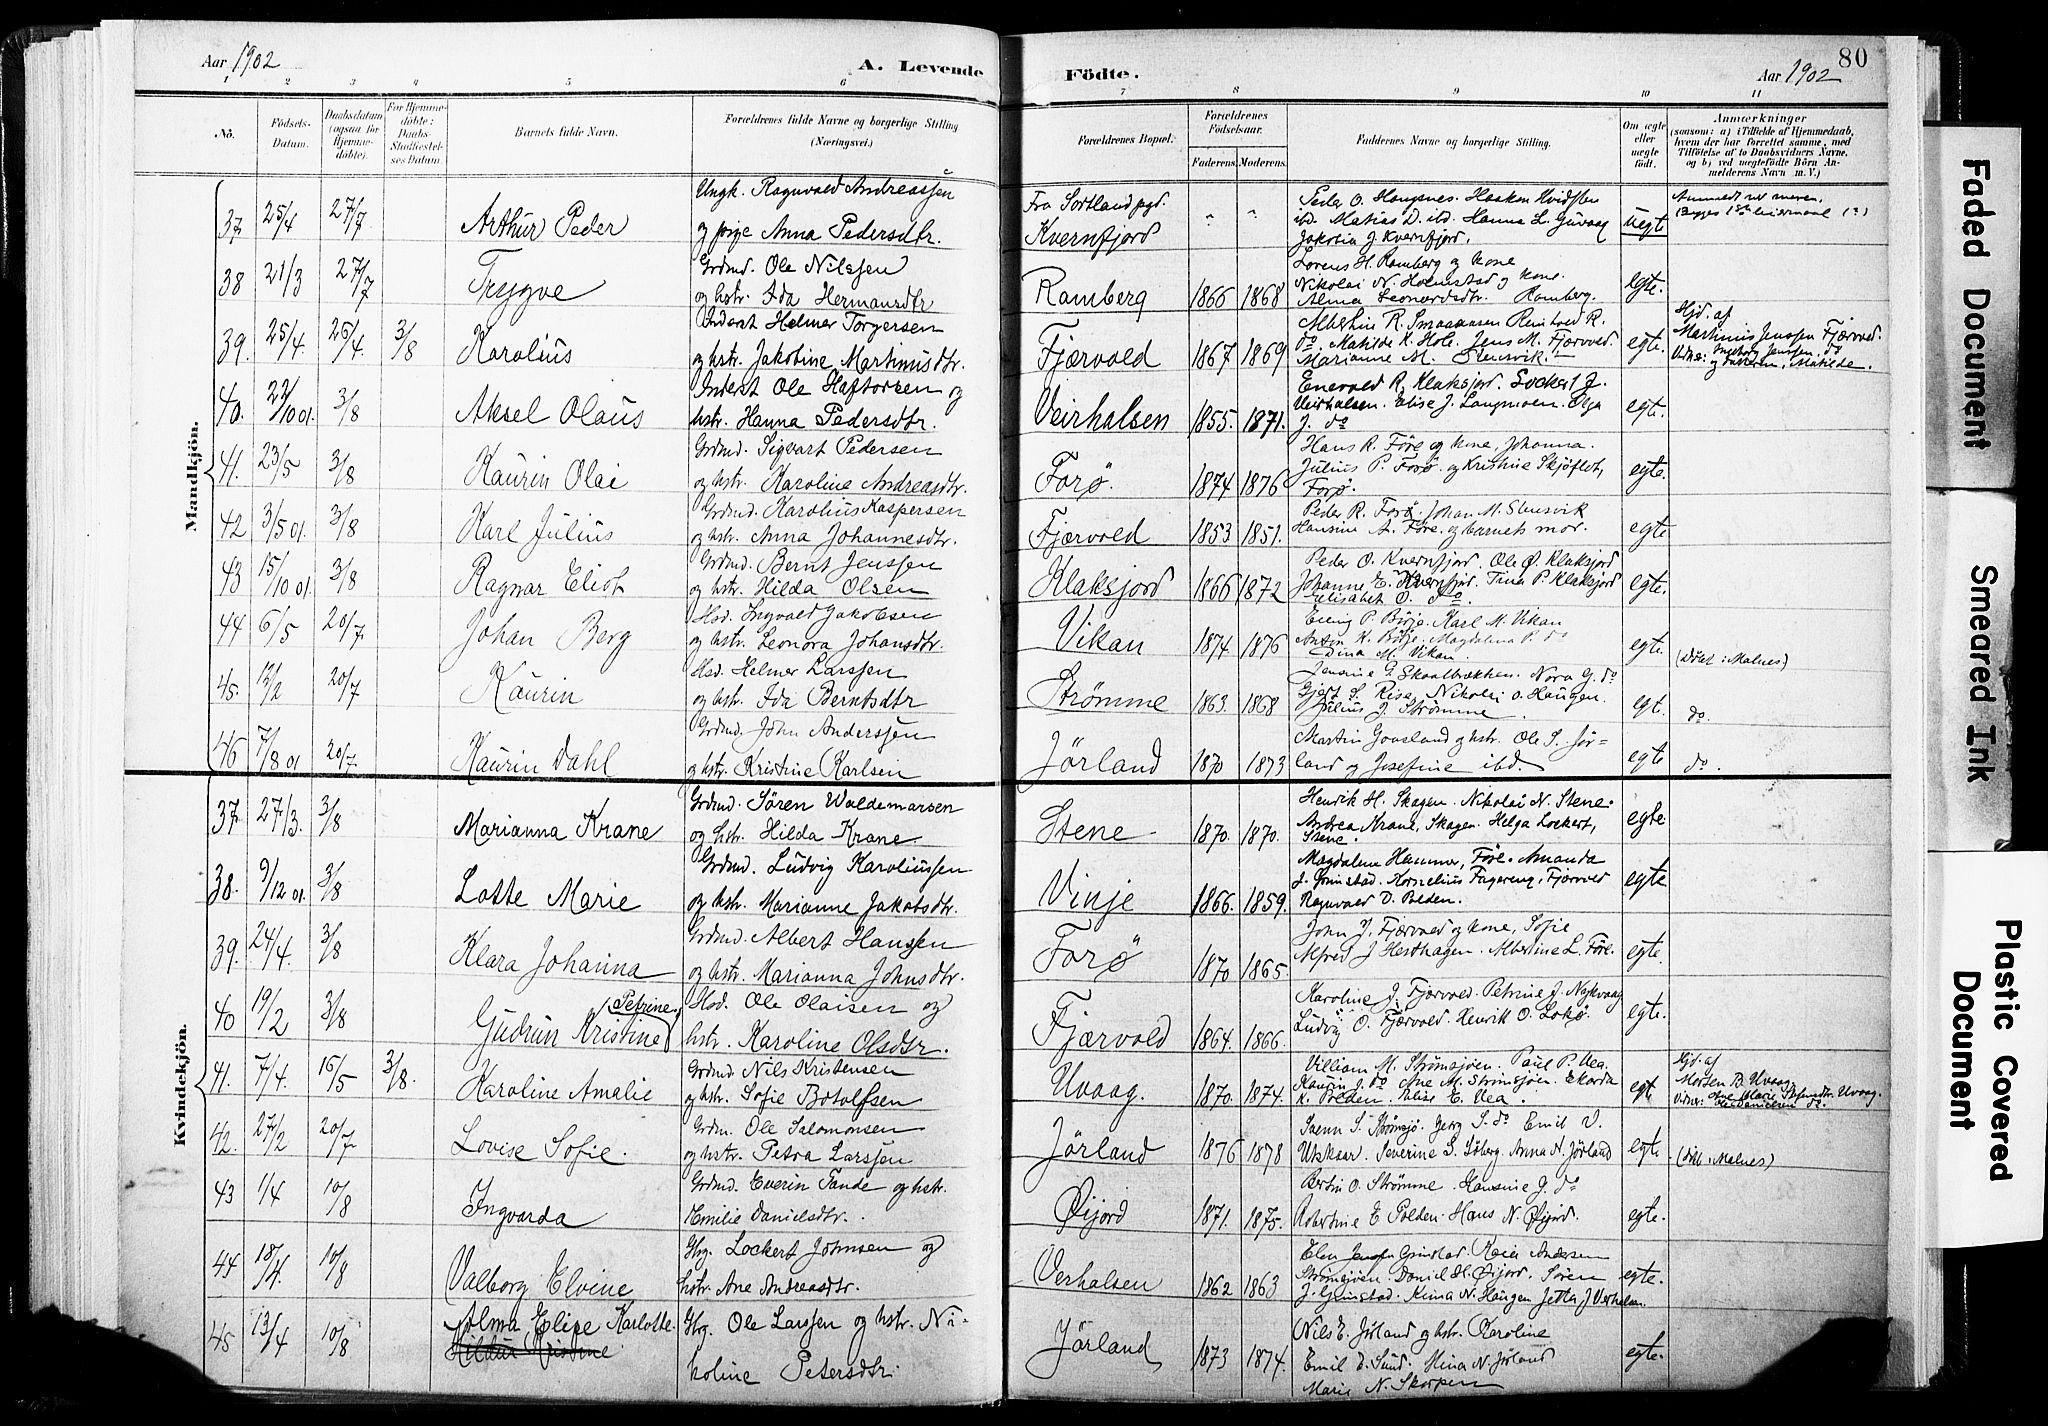 Aar 1902
A. Levende
Födte.
80
Aar 1902
1 2 3 4 5 6 7 8 9 10 11
No.
Födsels-Datum.
Daabsdatum (ogsaa for Hjemme-döbte).
For Hjemme-döbte: Daabs-Stadfæstel-ses Datum.
Barnets fulde Navn.
Forældrenes fulde Navne og borgerlige Stilling (Næringsvei.)
Forældrenes Bopæl.
Forældrenes Födselsaar. Faderens. Moderens.
Faddernes Navne og borgerlige Stilling.
Om ægte eller uægte födt.
Anmærkninger (saasom: a) i Tilfælde af Hjemmedaab, hvem der har forrettet samme, med Tilföielse af to Daabsvidners Navne, og b) ved uægtefödte Börn An-melderens Navn m. V.)
Mandkjön.
37 25/4 27/7 Arthur Peder Ungk. Ragnvald Andreassen og pige Anna Pedersdtr. Fra Sortland pgd. Kvernfjord " " Peder O. Haugsnes. Haakon Kvidsten ibd. Matias D. ibd. Hanna L. Guvaag Jakobia J. Kvernfjord. uegt Anmeldt ved moren.
38 21/3 27/7 Trygve Grdmd. Ole Nilssen og hstr. Ida Hermansdtr Ramberg 1866 1868 Lorens H. Ramberg og kone Nikolai N. Holmstad og kone. Alma Leonardsdtr. Ramberg. egte.
39. 25/4. 26/4 3/8 Karolius Inderst Helmer Torgersen og hstr. Jakobine Martinusdtr. Fjærvold 1867 1869 Albertine R. Smaaaasen Reinhold R. do. Matilde K. Hole. Jens M. Fjærvold. Marianne M. Stensvik. egte. Hjd. af Martinius Jenssen Fjærvold.
40. 22/10 01. 3/8 Aksel Olaus Inderst Ole Haftorsen og hstr. Hanna Pedersdtr. Veirhalsen 1855. 1871. Enevald R. Klaksjord. Lockert J. Veirhalsen. Elise J. Langmoen. Olga J. do egte.
41. 23/5 3/8 Kaurin Olai Grdmd. Sigvart Pedersen og hstr. Karoline Andreasdtr. Forø. 1874 1876 Hans R. Føre og kone, Johanna. Julius P. Forø og Kristine Skjøflot, Forø. egte.
42 3/5 01. 3/8 Karl Julius Grdmd. Karolius Kaspersen og hstr. Anna Johannesdtr. Fjærvold 1853 1851. Peder R. Forø. Johan M. Stensvik Hansine A. Føre. og barnets mor. egte
43 15/10 01 3/8 Ragnar Eliot Grdmd. Bernt Jenssen og hstr. Hilda Olsen Klaksjord 1866 1872 Peder O. Kvernfjord. Ole Ø. Klaksjord Johanne E. Kvernfjord. Tina P. Klaksjord Elisabet O. do. egte.
44 6/5 20/7 Johan Berg Hsd. Ingvald Jakobsen og hstr. Leonora Johansdtr. Vikan 1874 1876 Eling P. Børje. Karl M. Vikan Anton K. Børje. Magdalena P. do Dina M. Vikan. egte. (Døbt: Malnes)
45. 12/2 20/7 Kaurin Hsd. Helmer Larssen og hstr. Ida Berntsdtr Strømme 1863. 1868 Jensine G. Skaalbækken. Nora G. do Gjert S. Risø. Nikolai O. Haugen. Julius J. Strømme. egt. do.
46 7/8 01 20/7 Kaurin Dahl Grdmd. John Anderssen og hstr. Kristine Karlsen Jørland 1870 1873 Martin Gaasland og hstr. Ole S. Jør-land og Josefine ibd. egte do.
Kvindekjön.
37 27/3. 3/8 Marianna Krane Grdmd. Søren Waldemarsen og hstr. Hilda Krane. Stene 1870. 1870. Henrik H. Skagen. Nikolai N. Stene. Andrea Krane, Skagen. Helga Lockert, Stene. egte
38. 9/12 01. 3/8 Lotte Marie Grdmd. Ludvig Karoliussen og hstr. Marianne Jakobsdtr. Vinje 1866. 1859. Magdalene Hammer, Føre. Amanda J. Grimstad. Kornelius Fagereng, Fjærvold Ragnvald D. Polden. egte
39. 24/4. 3/8 Klara Johanna Grdmd. Albert Hanssen og hstr. Marianna Johnsdtr. Forø 1870 1865. John J. Fjærvold og kone, Sofie Alfred J Hesthagen. Albertine L. Føre. egte.
40 19/2 3/8 Gudrun Kristine Petrine Hsd. Ole Olaisen og hstr. Karoline Olsdtr. Fjærvold 1864. 1866. Karoline J. Fjærvold. Petrine J. Nykvaag Ludvig O. Fjærvold. Henrik O. Lokø. egte.
41. 7/4. 16/5 3/8. Karoline Amalie Grdmd Nils Kristensen og hstr. Sofie Botolfsen Uvaag. 1870. 1874. Villiam M. Strømsjøen. Paul P. Uea. Kaurin J. do Ane M. Strømsjøen. Ekarda K. Polden. Elise E. Uea. egt. Hjd. af Morten B. Uvaag.
42. 27/2 20/7 Lovise Sofie. Grdm. Ole Salomonsen og hstr. Petra Larssen Jørland 1876 1878 Svenn S. Strømsjø Georg S. do Emil V. Utskaar. Severine S. Søberg. Anna N. Jørland egte. (døbt: Malnes)
43 1/4 10/8 Ingvarda Grdmd. Everin Tande og hstr. Emilie Danielsdtr. Øijord 1871. 1875. Bertin O. Strømme. Hansine J. do Robertine E Polden. Hans N. Øijord. egte.
44 18/4. 10/8 Valborg Elvine Gbg. Lockert Johnsen og hstr. Ane Andreasdtr. Verhalsen 1862 1863 Elen Jensen Grimstad. Kaia Andersen Strømsjøen. Daniel H. Øijord. Søren J. Grimstad. Nina N. Haugen Jetta J Verhalsen egte.
45 13/4 10/8 Alma Elise Karlotte. Hildur Kristine Gbg. Ole Larssen og hstr. Ni-koline Petersdtr. Jørland 1873 1874. Nils E. Jørland og hstr. Karoline Emil E. Sund. Mina N. Jørland Marie N. Skorpen egte.
Faded Document
Smeared Ink
Plastic Covered Document